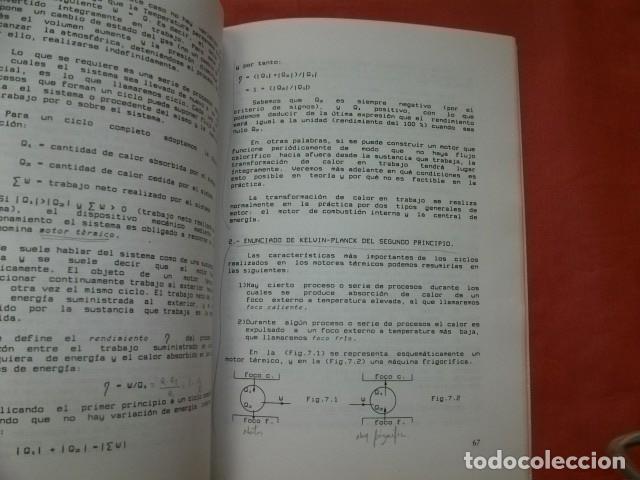 este caso no hay
siguiente que la Temperatura
nvertido W = Q. Es decir, el
pone un cambio íntegramente en trabajo
ás el volumen de estado del gas
canzar la atmosférica, aumenta y la presión
ello, realizarse indefinidamente
Lo que se requiere es una serie de
cuales el sistema sea llevado
cial, es lo que llamaremos ciclo.
ocesos que forman un ciclo puede
a el sistema o procedente del mismo
trabajo por o sobre el sistema.
Para un ciclo completo adoptemos
ción:
Q₁ = cantidad de calor absorbida por el
Q₂ = cantidad de calor cedida por el sistema
∑W = trabajo neto realizado por el sistema
Si |Q₁|>|Q₂| y ∑W > 0 (trabajo neto
ema), el dispositivo mecánico
onamiento el sistema es obligado a
nomina motor térmico.
Se suele hablar del sistema como de una
y se suele decir que el motor
ódicamente. El objeto de un motor
cionar continuamente trabajo al exterior
otra vez el mismo ciclo. El trabajo neto
energía suministrada al exterior,
bido por la sustancia que trabaja es la
e define el rendimiento η del
ción entre el trabajo suministrado
quiera de energía y el calor absorbido
es de energía:
η = W/Q₁
licando el primer principio a un ciclo
ando que no hay variación de energía
os:
|Q₁| + |Q₂| = |∑W|
y por tanto:
η = (|Q₁|+|Q₂|)/|Q₁|
= 1 - (|Q₂|/|Q₁|)
Sabemos que Q₂ es siempre negativo (por el
criterio de signos), y Q₁ positivo, con lo que
podemos deducir de la última expresión que el rendimiento
será igual a la unidad (rendimiento del 100 %) cuando sea
nulo Q₂.
En otras palabras, si se puede construir un motor que
funcione periódicamente de modo que no haya flujo
calorífico hacia afuera desde la sustancia que trabaja, la
transformación de calor en trabajo tendrá lugar
íntegramente. Veremos más adelante en qué condiciones es
esto posible en teoría y por qué no es factible en la
práctica.
La transformación de calor en trabajo se realiza
normalmente en la práctica por dos tipos generales de
motor: el motor de combustión interna y la central de
energía.
2.- ENUNCIADO DE KELVIN-PLANCK DEL SEGUNDO PRINCIPIO.
Las características más importantes de los ciclos
realizados en los motores térmicos podemos resumirlas en
las siguientes:
1)Hay cierto proceso o serie de procesos durante los
cuales se produce absorción de calor de un
foco externo a temperatura elevada, al que llamaremos
foco caliente.
2)Durante algún proceso o serie de procesos el calor es
expulsado a un foco externo a temperatura más baja,
que llamaremos foco frío.
En la (Fig.7.1) se representa esquemáticamente un
motor térmico, y en la (Fig.7.2) una máquina frigorífica.
foco c. foco c.
Q₁ W Fig.7.1 W Q₁ Fig.7.2
Q₂ Q₂
foco f. foco f.
Motor Maq frigorífica
67
todocoleccion.net